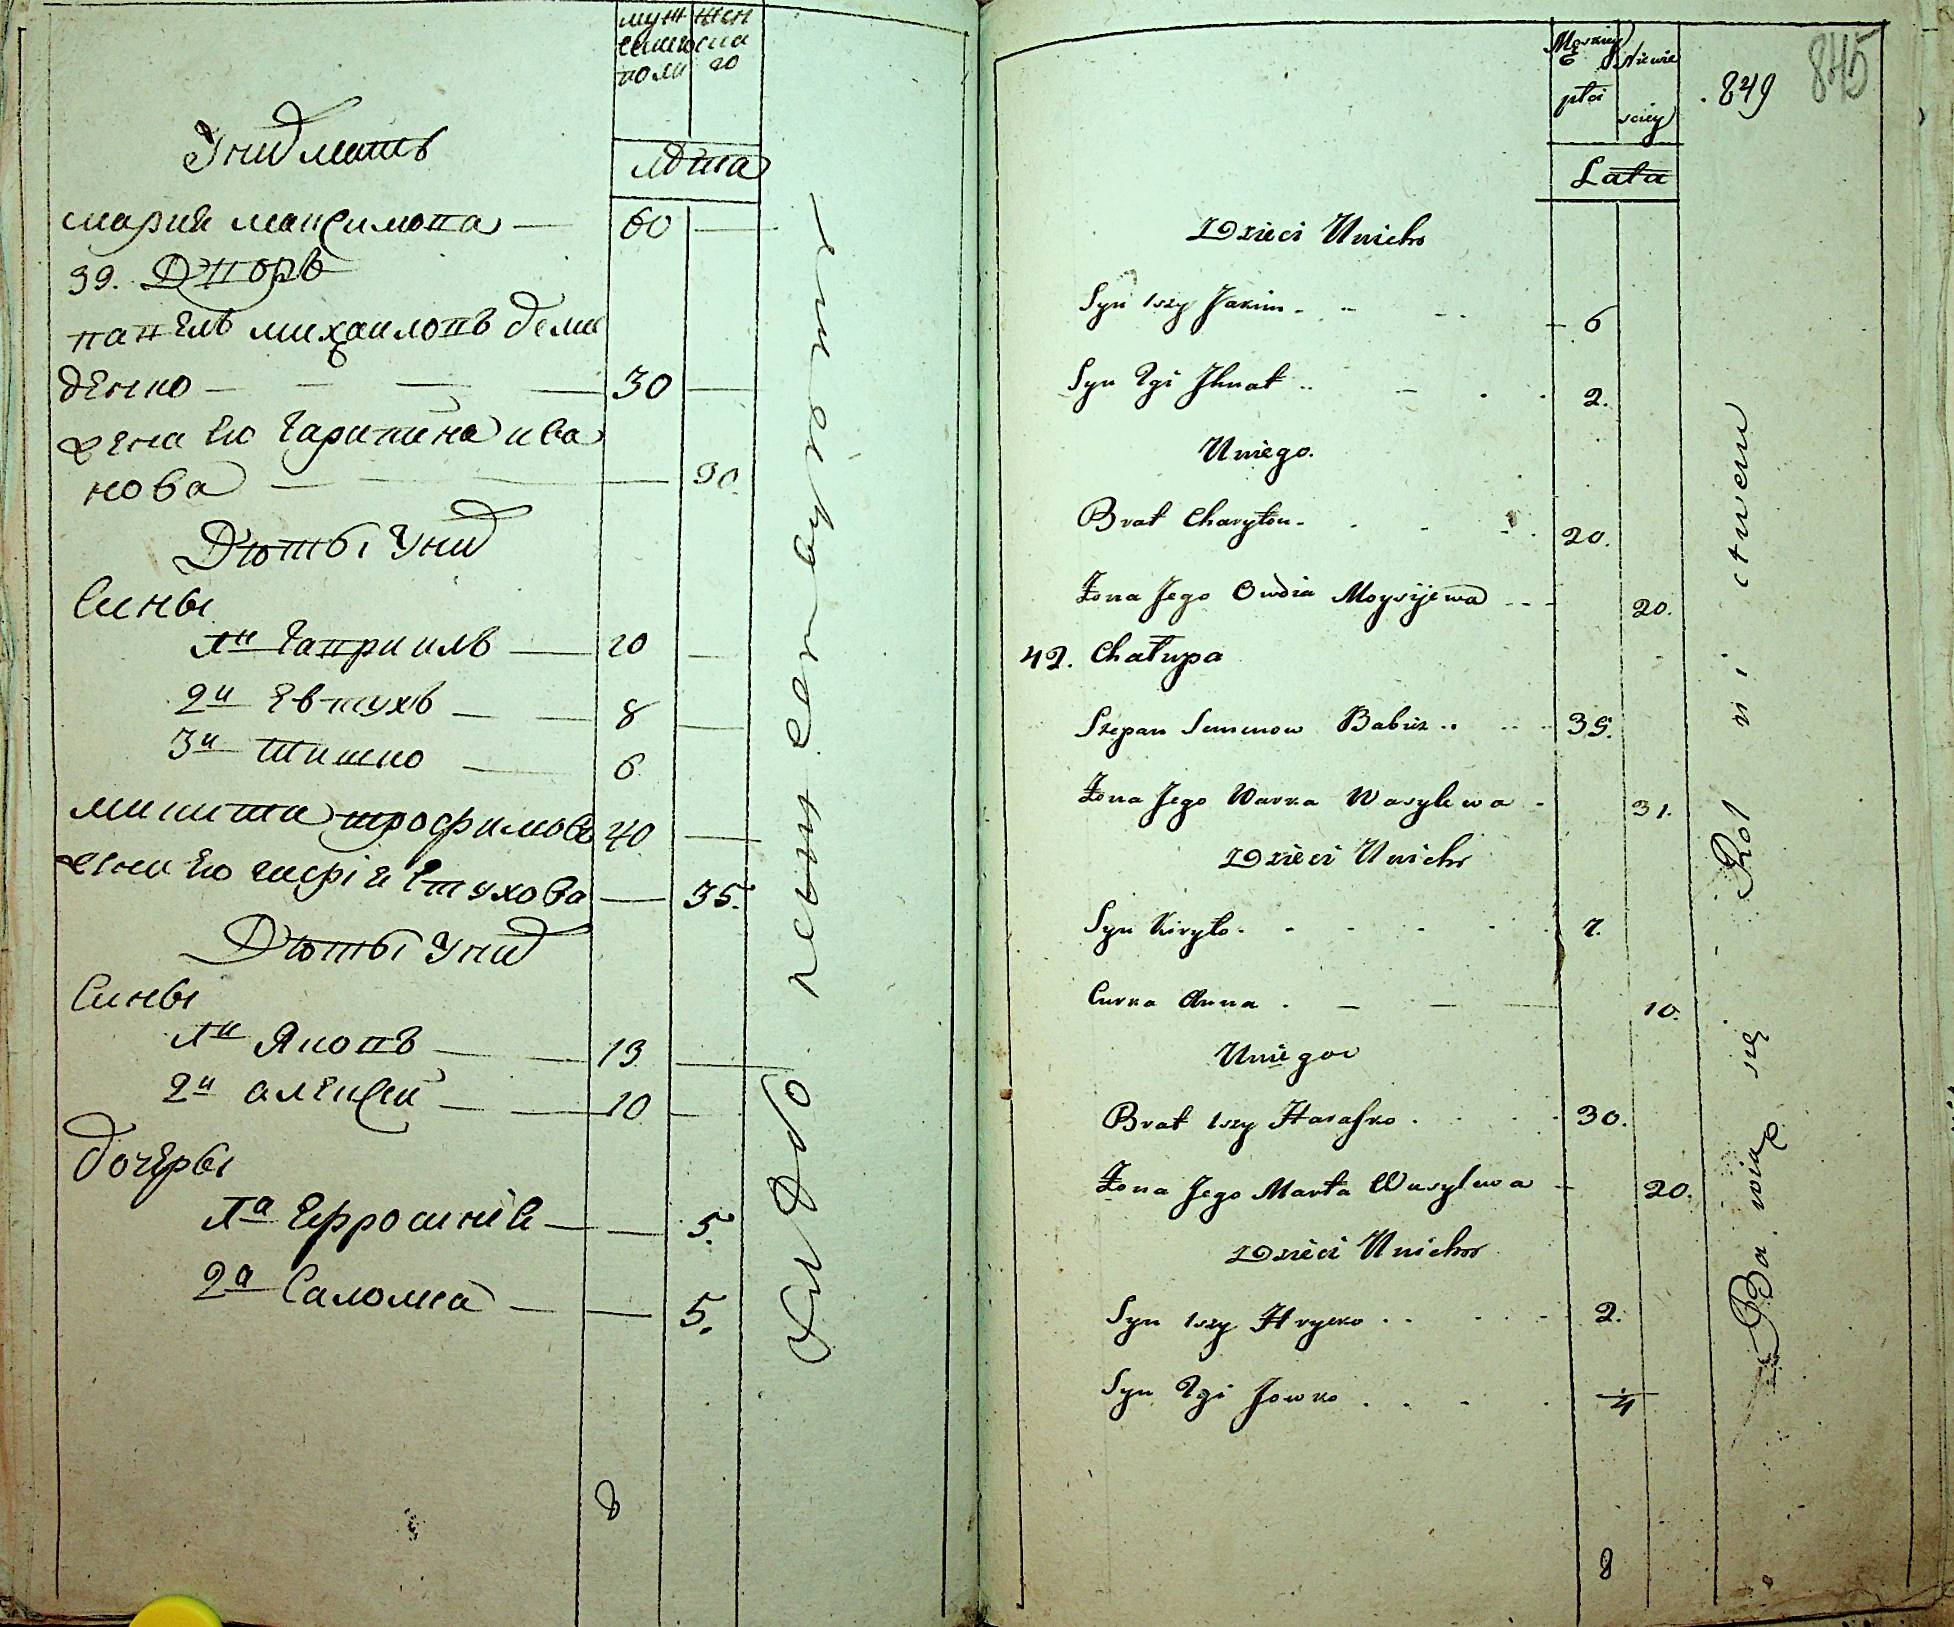 муж жен
ского ска
поли го
Унид мать
лѣта
мария максимова — 60 —
39. Дворъ
павелъ михаиловъ деми
денко — — — — 30 —
жена Его Гарпина ива
нова — — — 30.
Дѣты Унид
Сины
1й Гавриилъ — 10 —
2й Евтухъ — — 8 —
3й Тишко — 6
микита трофимовъ 40 —
жена Его Евтухова — 35.
Дѣты Унид
Сины
1й Яковъ — — 13 —
2й алексей — — 10 —
дочеры
1а Ефросиния — — 5.
2а Саломея — — 5.
8
Męzkiey Niewie
płci sciey
Lata
.849
845
Dzieci Unich
Syn 1szy Jakim - 6
Syn 2gi Ihnat .. 2.
Uniego.
Brat Charyton - 20.
Żona Jego Owdia Moysijewa 20.
42. Chałupa
Stepan Semenow Babicz .. 35.
Żona Jego Warka Wasylewa - 31.
Dzieci Unich
Syn Kiryło - 7.
Curka Anna . 10.
Uniego
Brat 1szy Harasko . 30.
Żona Jego Marta Wasylewa - 20.
Dzieci Unich
Syn 1szy Hrycko .. 2.
Syn 2gi Jowko . 4
8
Bawią się - Rolnictwem